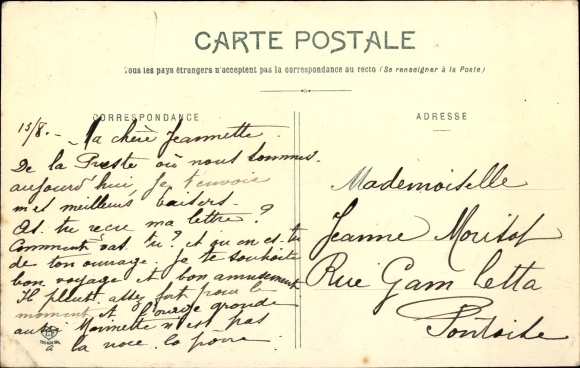 CARTE POSTALE
Tous les pays étrangers n'acceptent pas la correspondance au recto (Se renseigner à la Poste)
CORRESPONDANCE
ADRESSE
13/8. - Ma chère Jeannette.
De la Preste où nous sommes
aujourd'hui, je t'envoie
mes meilleurs baisers.
As-tu reçu ma lettre?
Comment vas-tu? et où en es-tu
de ton ouvrage. Je te souhaite
bon voyage et bon amusement
Il pleut assez fort pour le
moment et l'orage gronde
aussi Mounette n'est pas
à la noce. la pauvre
Mademoiselle
Jeanne Morisot
Rue Gambetta
Pontoise